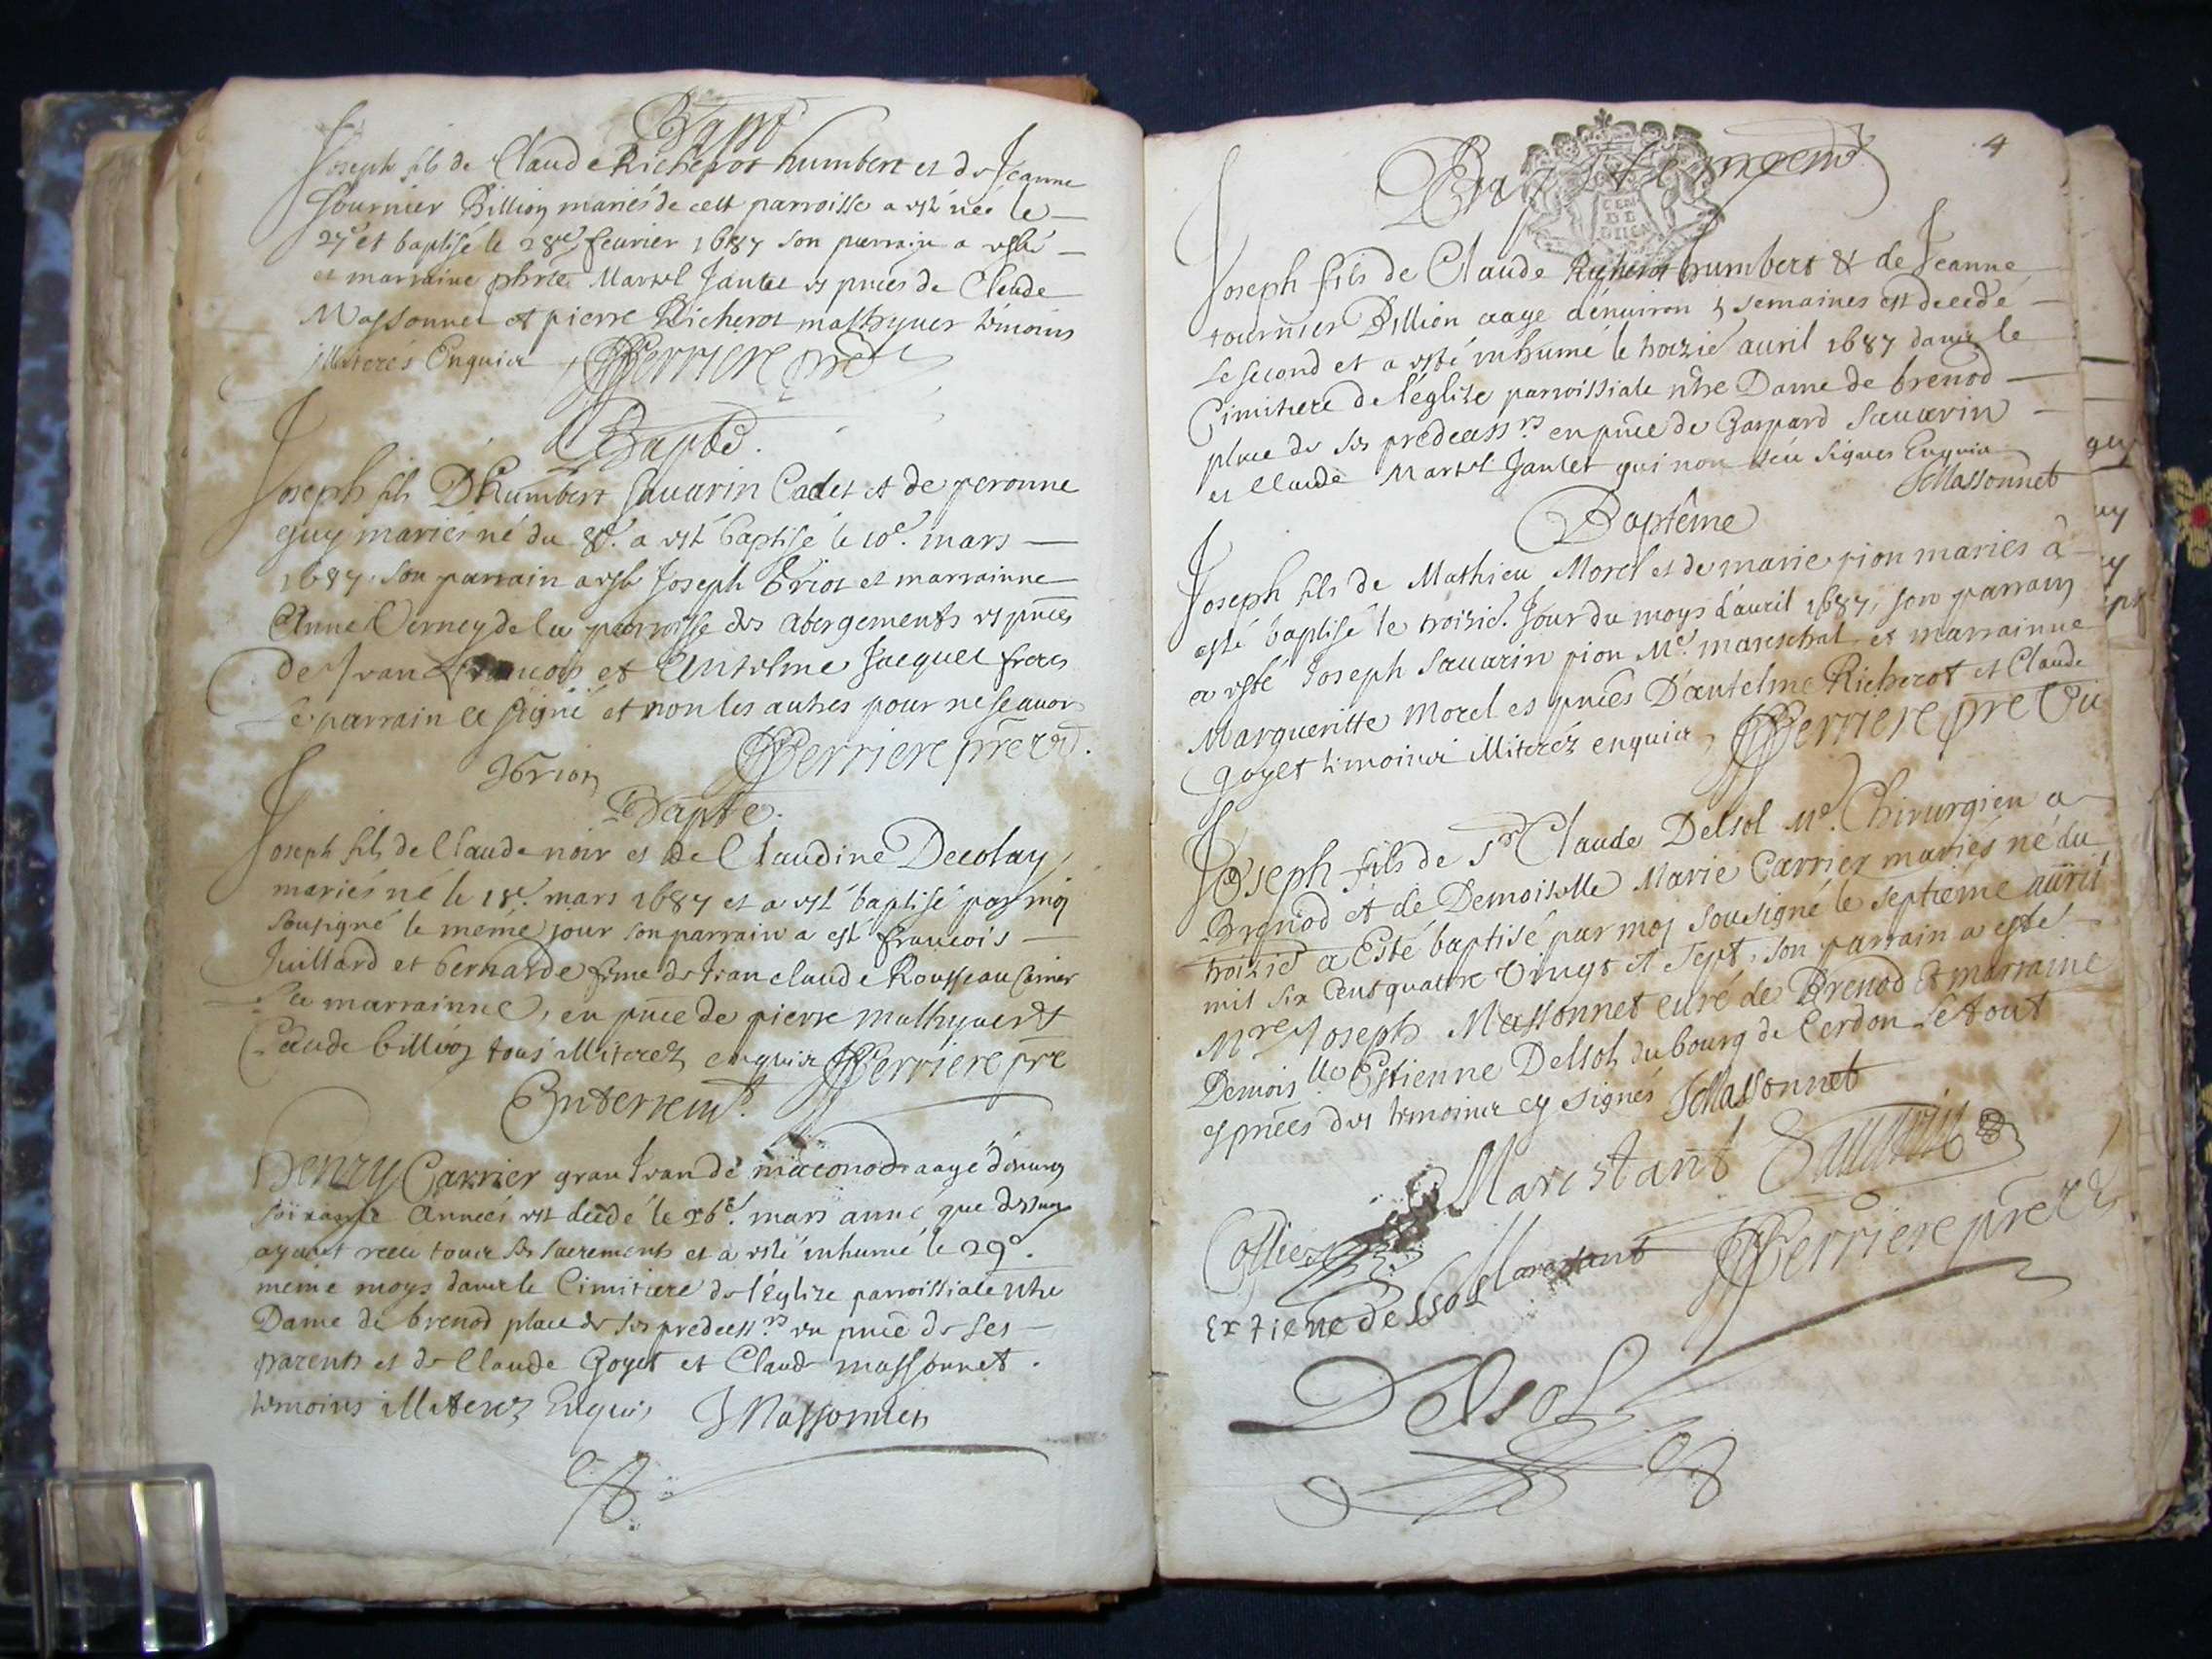 Bapt
Joseph fils de Claude Richerot humbert et de Jeanne
tournier Billion mariés de cett parroisse a esté née le
27e et baptisé le 28e feurier 1687 son parrain a esté
et marraine Martel Jantet es pnces de Claude
Massonnet et pierre Richerot mathyuer témoins
illiterés Enquis FPerriere pre
Bapte.
Joseph fils D'humbert Sauarin Cadet et de peronne
guy mariés né du 8e. a esté baptisé le 10e. mars
1687. son parrain a esté Joseph brion et marrainne
Anne Verney de la parroisse des abergements es pnces
de Jean francois et Antelme Jacquet freres
Le parrain a signé et non les autres pour ne scauoir
FPerriere pre
JBrion
Bapte.
Joseph fils de Claude noir et de Claudine Decolay
mariés né le 18e. mars 1687 et a esté baptisé par moj
sousigné le même jour son parrain a esté francois
Juillard et bernarde feme de Jean claude Rousseau
la marrainne, en pnce de pierre mathyuer et
Claude billion tous illiterez enquis FPerriere pre
Enterremt.
Henry Carrier gran Jean de maconod aagé d'enuiron
soixante Années est decedé le 26e. mars anné que dessus
ayant receu tous ses sacrements et a esté inhumé le 29e.
même moys dans le Cimitiere de l'Eglise parroissiale nhe
Dame de brenod place de ses predecessrs en pnce de ses
parents et de Claude Goyet et Claude massonnet.
témoins illiterez Enquis JMassonnet
4
Enterrement
Joseph fils de Claude Richerot humbert & de Jeanne
tournier Billion aagé d'enuiron 5 semaines est decedé
le second et a esté inhumé le troizie auril 1687 dans le
Cimitiere de l'église parroissiale nhe Dame de brenod
place de ses predecessrs en pnce de Gaspard Sauarin
et Claude Martel Jantet qui non sceu signer Enquis
JMassonnet
Baptême
Joseph fils de Mathieu Morel et de marie pion mariés à
esté baptisé le troizie. Jour du moys d'auril 1687, son parrain
a esté Joseph Sauarin pion Me. mareschal et marrainne
Margueritte Morel es pnces D'antelme Richerot et Claude
Goyet témoins illiterez enquis, FPerriere pre Vic
Joseph fils de Sr Claude Delsol Me. Chirurgien a
Brenod et de Demoiselle Marie Carrier mariés né du
troizie a Esté baptisé par moj sousigné le septiéme auril
mil six Cent quattre Vingt et sept, son parrain a esté
Mre Joseph Massonnet curé de Brenod et marraine
Demoislle Estienne Delsol du bourg de Cerdon le tout
es pnces des témoins cy signés JMassonnet
Marestant Sauarin
Collier Marestant FPerriere pre
Extiene delsol
Delsol